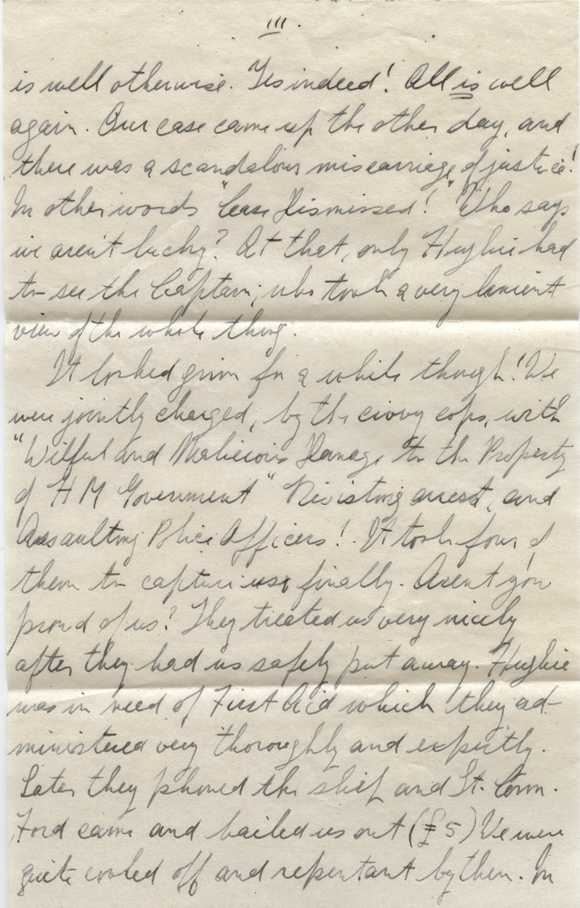 III.
is well otherwise. Yes indeed! All is well
again. Our case came up the other day, and
there was a scandalous miscarriage of justice!
In other words "Case Dismissed!" Who says
we aren't lucky? At that, only Hughie had
to see the Captain; who took a very lenient
view of the whole thing.
It looked grim for a while though! We
were jointly charged, by the civvy cops, with
"Wilful and Malicious Damage to the Property
of H M Government" Resisting arrest, and
Assaulting Police Officers! It took four of
them to capture us finally. Aren't you
proud of us? They treated us very nicely
after they had us safely put away. Hughie
was in need of First Aid which they ad-
ministered very thoroughly and expertly.
Later they phoned the ship and Lt. Com.
Ford came and bailed us out (£5) We were
quite cooled off and repentant by then. In